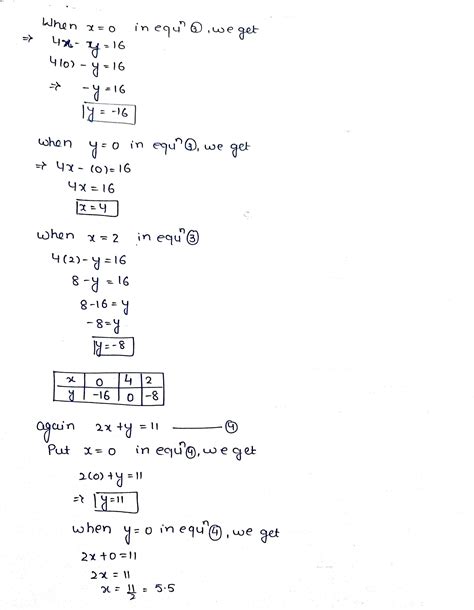 When x=0 in equⁿ③, we get
⇒ 4x - y = 16
4(0) - y = 16
⇒ -y = 16
y = -16
when y=0 in equⁿ③, we get
⇒ 4x - (0) = 16
4x = 16
x = 4
when x = 2 in equⁿ③
4(2) - y = 16
8 - y = 16
8 - 16 = y
-8 = y
y = -8
x 0 4 2
y -16 0 -8
again 2x + y = 11 ④
Put x=0 in equⁿ④, we get
2(0) + y = 11
⇒ y = 11
when y=0 in equⁿ④, we get
2x + 0 = 11
2x = 11
x = 11/2 = 5.5